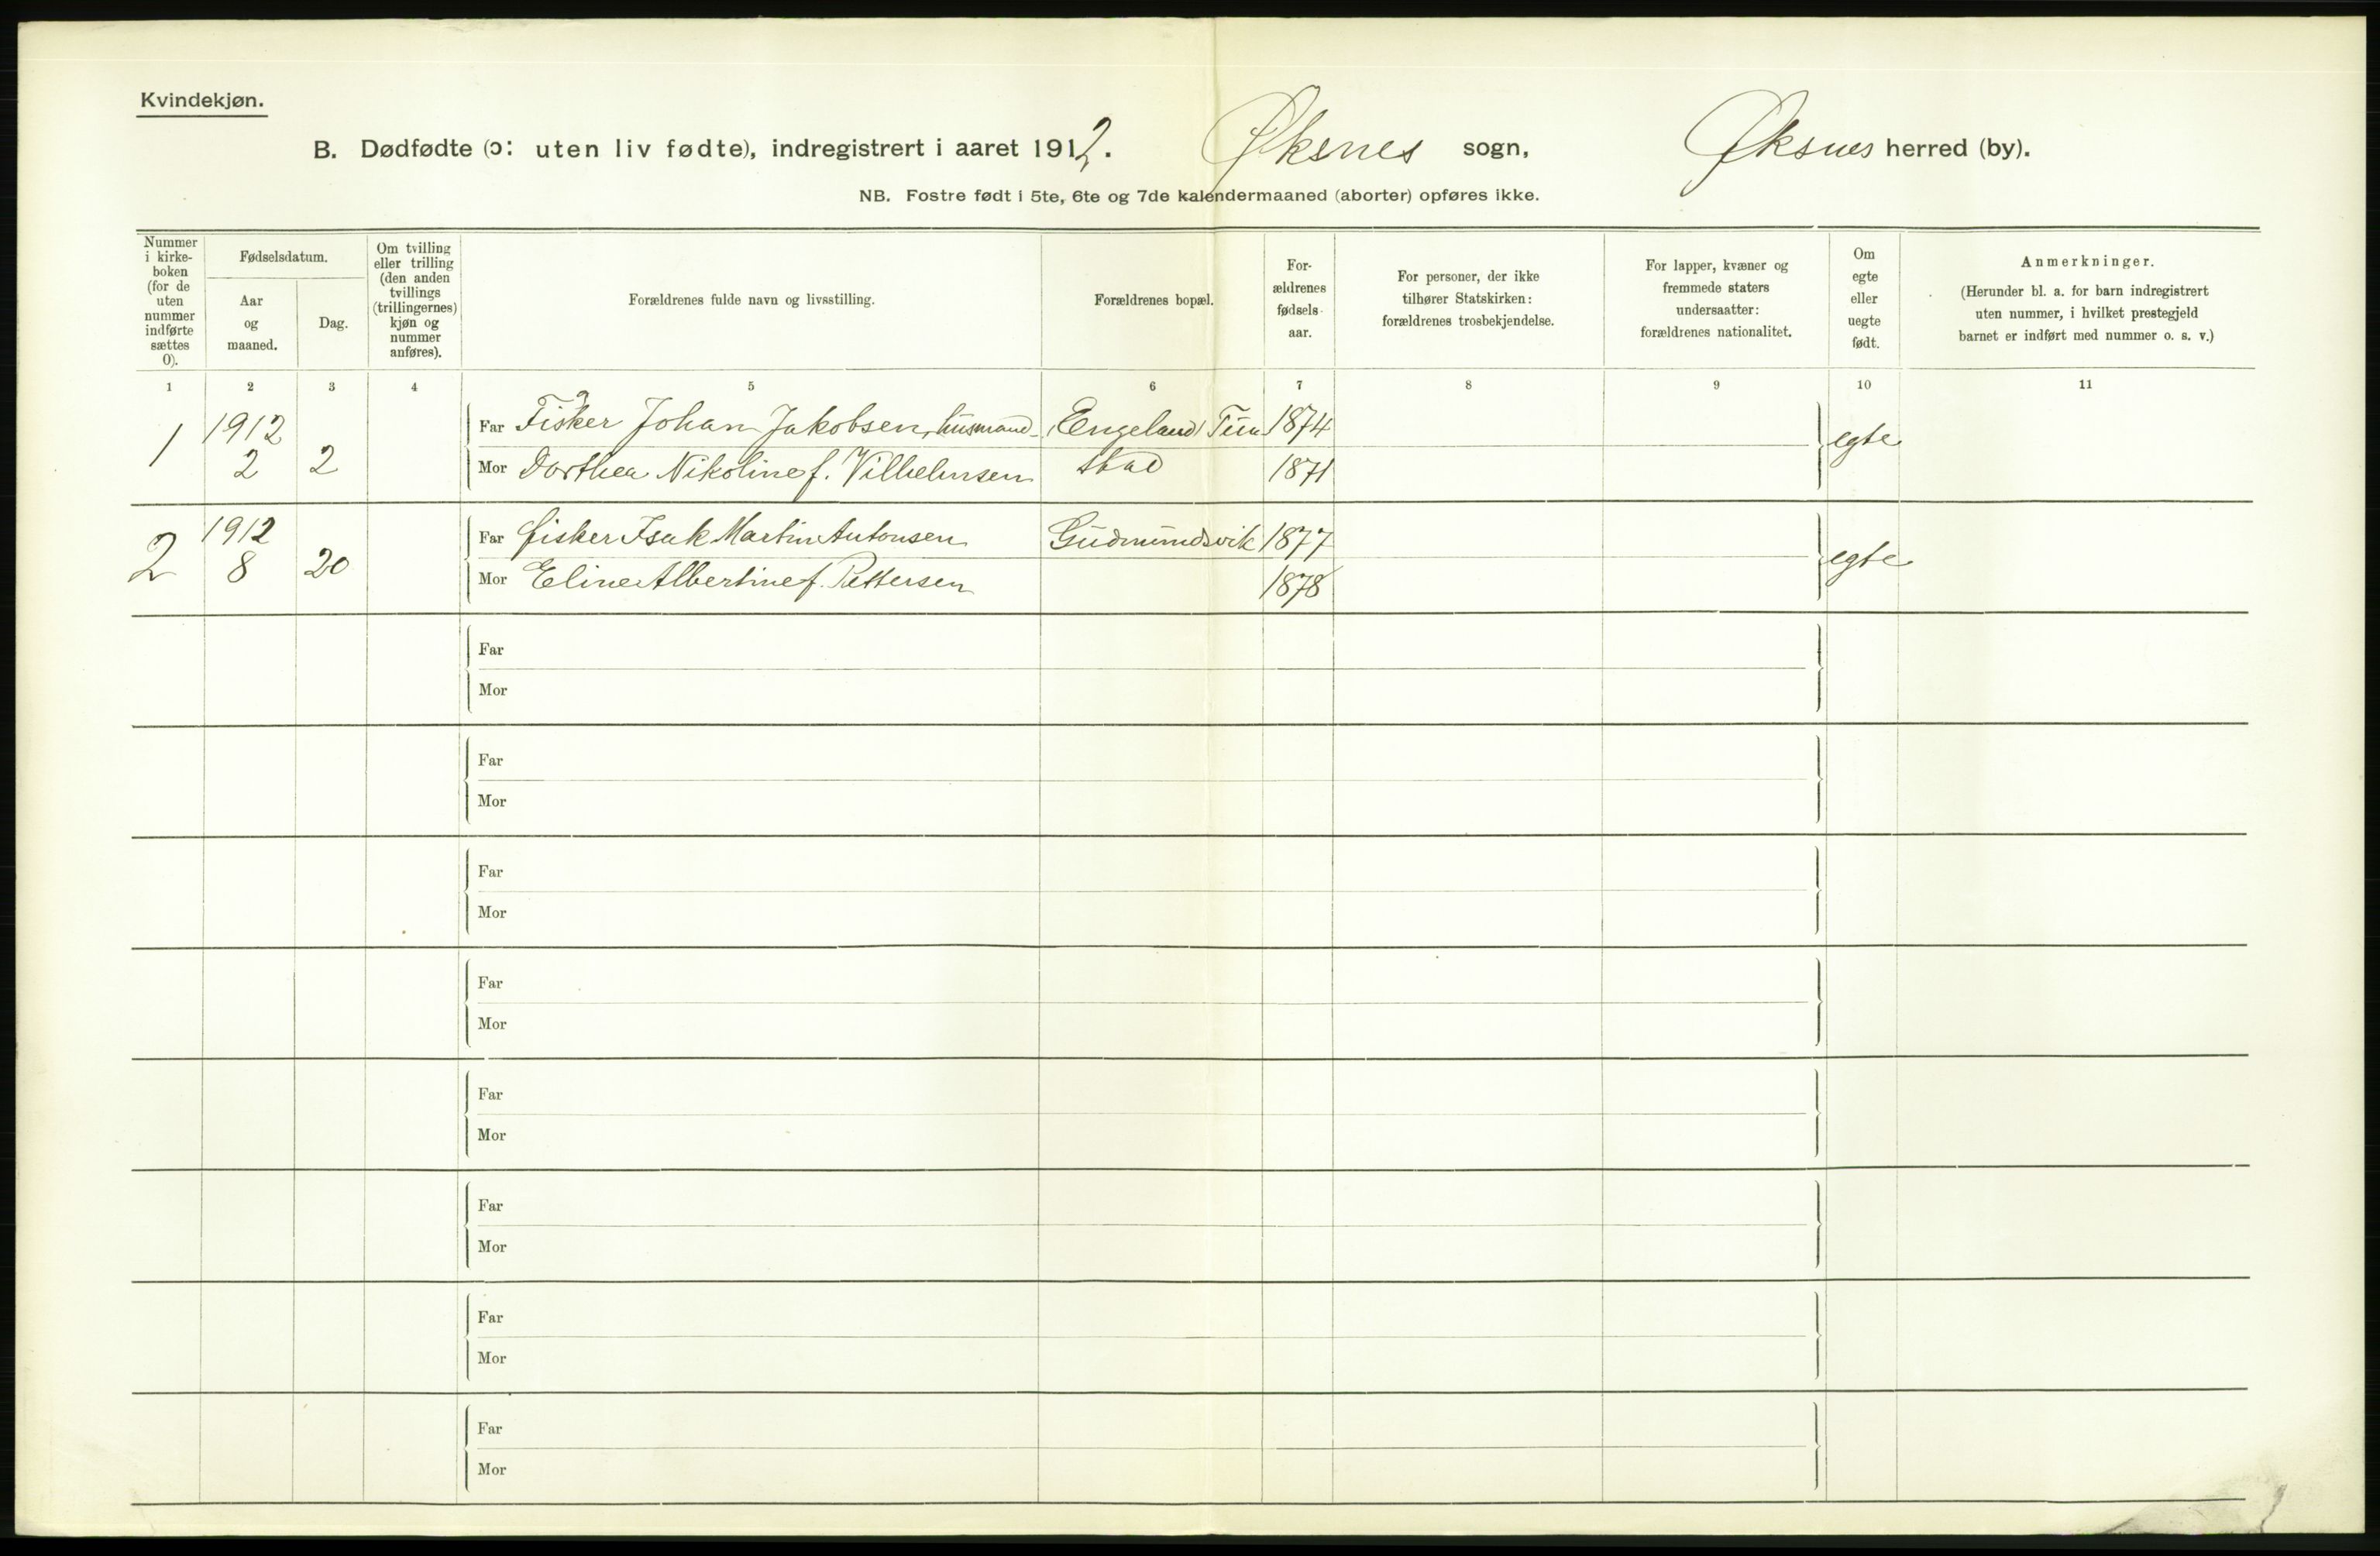 Kvindekjøn.
B. Dødfødte (ɔ: uten liv fødte), indregistrert i aaret 1912. Øksnes sogn, Øksnes herred (by).
NB. Fostre født i 5te, 6te og 7de kalendermaaned (aborter) opføres ikke.
Nummer
i kirke-
boken
(for de
uten
nummer
indførte
sættes
0).
Fødselsdatum.
Aar
og
maaned.
Dag.
Om tvilling
eller trilling
(den anden
tvillings
(trillingernes)
kjøn og
nummer
anføres).
Forældrenes fulde navn og livsstilling.
Forældrenes bopæl.
For-
ældrenes
fødsels-
aar.
For personer, der ikke
tilhører Statskirken:
forældrenes trosbekjendelse.
For lapper, kvæner og
fremmede staters
undersaatter:
forældrenes nationalitet.
Om
egte
eller
uegte
født.
Anmerkninger.
(Herunder bl. a. for barn indregistrert
uten nummer, i hvilket prestegjeld
barnet er indført med nummer o. s. v.)
1 2 3 4 5 6 7 8 9 10 11
1 1912 Far Fisker Johan Jakobsen, husmand Engeland Tun 1874 egte
2 2 Mor Dorthea Nikoline f. Vilhelmsen stad 1871
2 1912 Far fisker Isak Martin Antonsen Gudmundsvik 1877 egte
8 20 Mor Eline Albertine f. Pettersen 1878
Far
Mor
Far
Mor
Far
Mor
Far
Mor
Far
Mor
Far
Mor
Far
Mor
Far
Mor